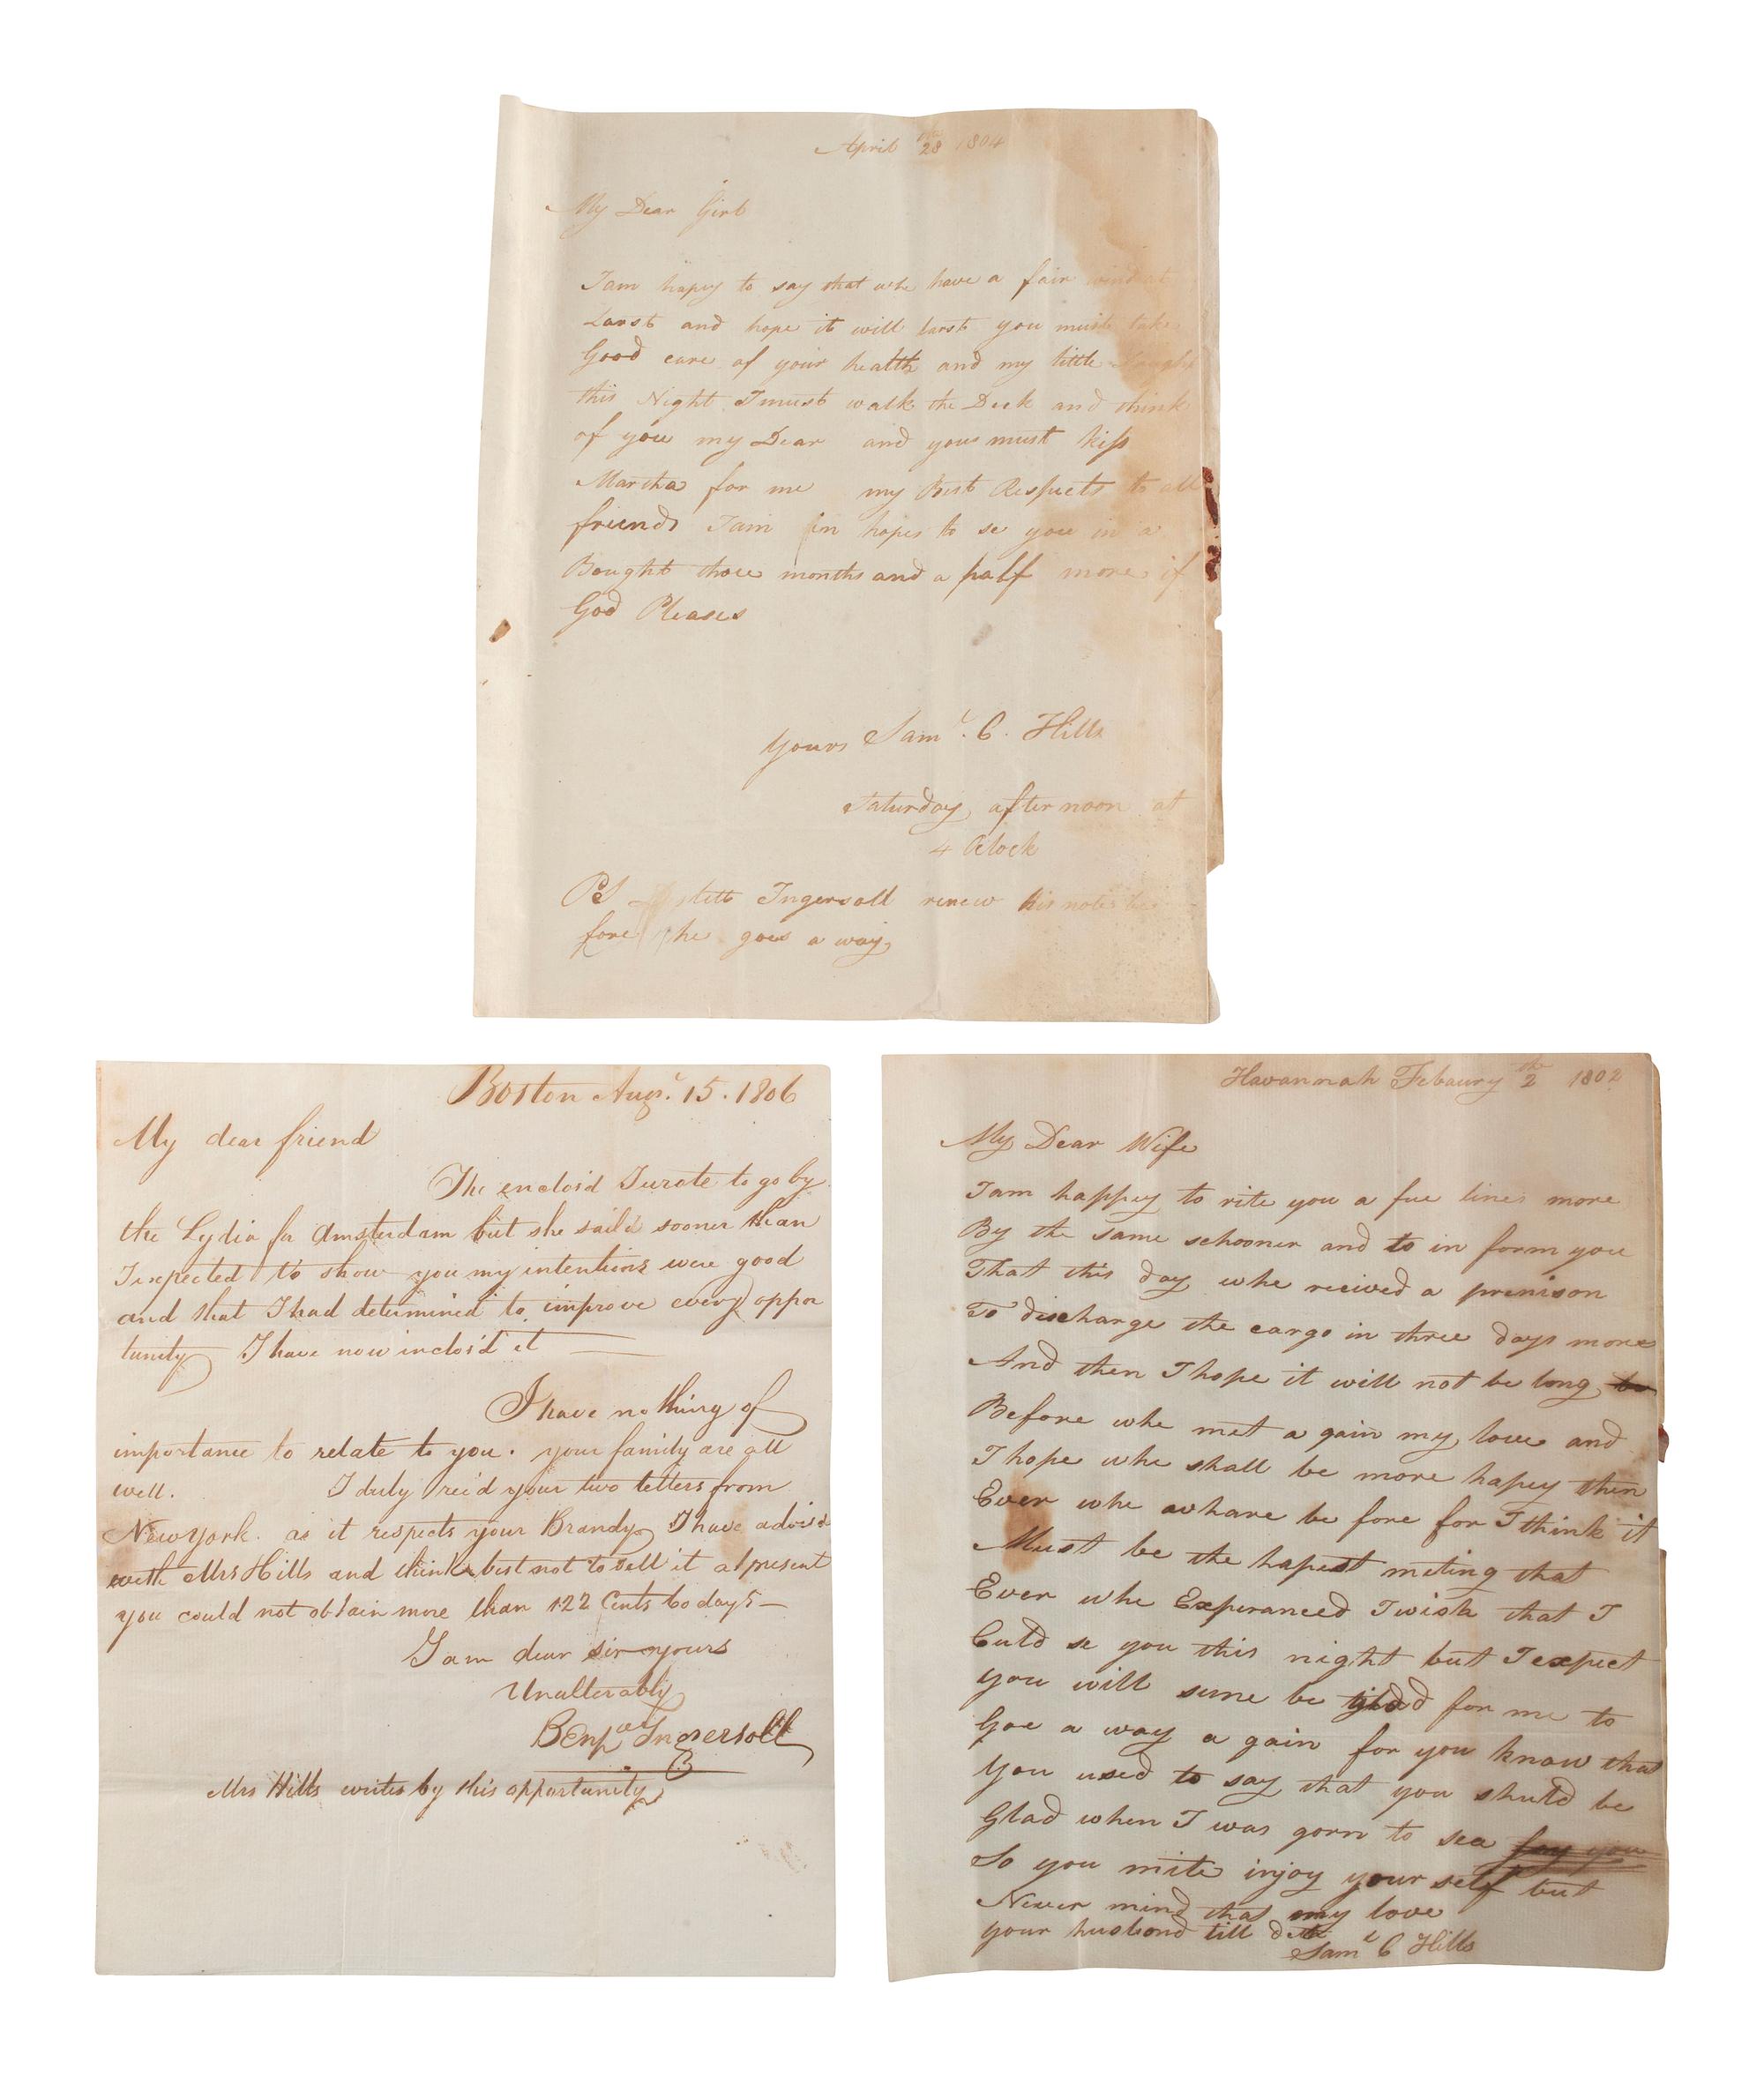 April 28th 1804
My Dear Girl
I am hapey to say that whe have a fair wind at
Larst and hope it will larst you must take
Good care of your health and my little
this Night I must walk the Deck and think
of you my Dear and you must kiss
Martha for me my Best Respects to all
friends I am in hopes to se you in a
Bought three months and a half more if
God Pleases
yours Saml. C. Hills
Saturday afternoon at
4 Oclock
PS lett Ingersoll renew his notes be
fore he goes a way
Boston Augt. 15. 1806
My dear friend
The enclos'd I wrote to go by
the Lydia for Amsterdam but she sail'd sooner than
I expected to show you my intentions were good
and that I had determined to improve every oppor
tunity I have now inclos'd it
I have nothing of
importance to relate to you. your family are all
well. I duly rec'd your two letters from
New York. as it respects your Brandy I have advis'd
with Mrs Hills and think best not to sell it at present
you could not obtain more than 122 Cents 60 days
I am dear sir yours
Unalterably
Benj Ingersoll
Mrs Hills writes by this opportunity
Havannah Febaury 2th 1802
My Dear Wife
I am happey to rite you a fue lines more
By the same schooner and to in form you
That this day whe recived a premison
To discharge the cargo in three days more
And then I hope it will not be long
Before whe met a gain my love and
I hope whe shall be more hapey then
Ever whe whare be fore for I think it
Must be the hapest meting that
Ever whe Experanced I wish that I
Culd se you this night but I expect
you will sune be glad for me to
Goe a way a gain for you know that
You used to say that you shuld be
Glad when I was gorn to sea
So you mite injoy your self but
Never mind that my love
your husbond till deth
Saml C Hills